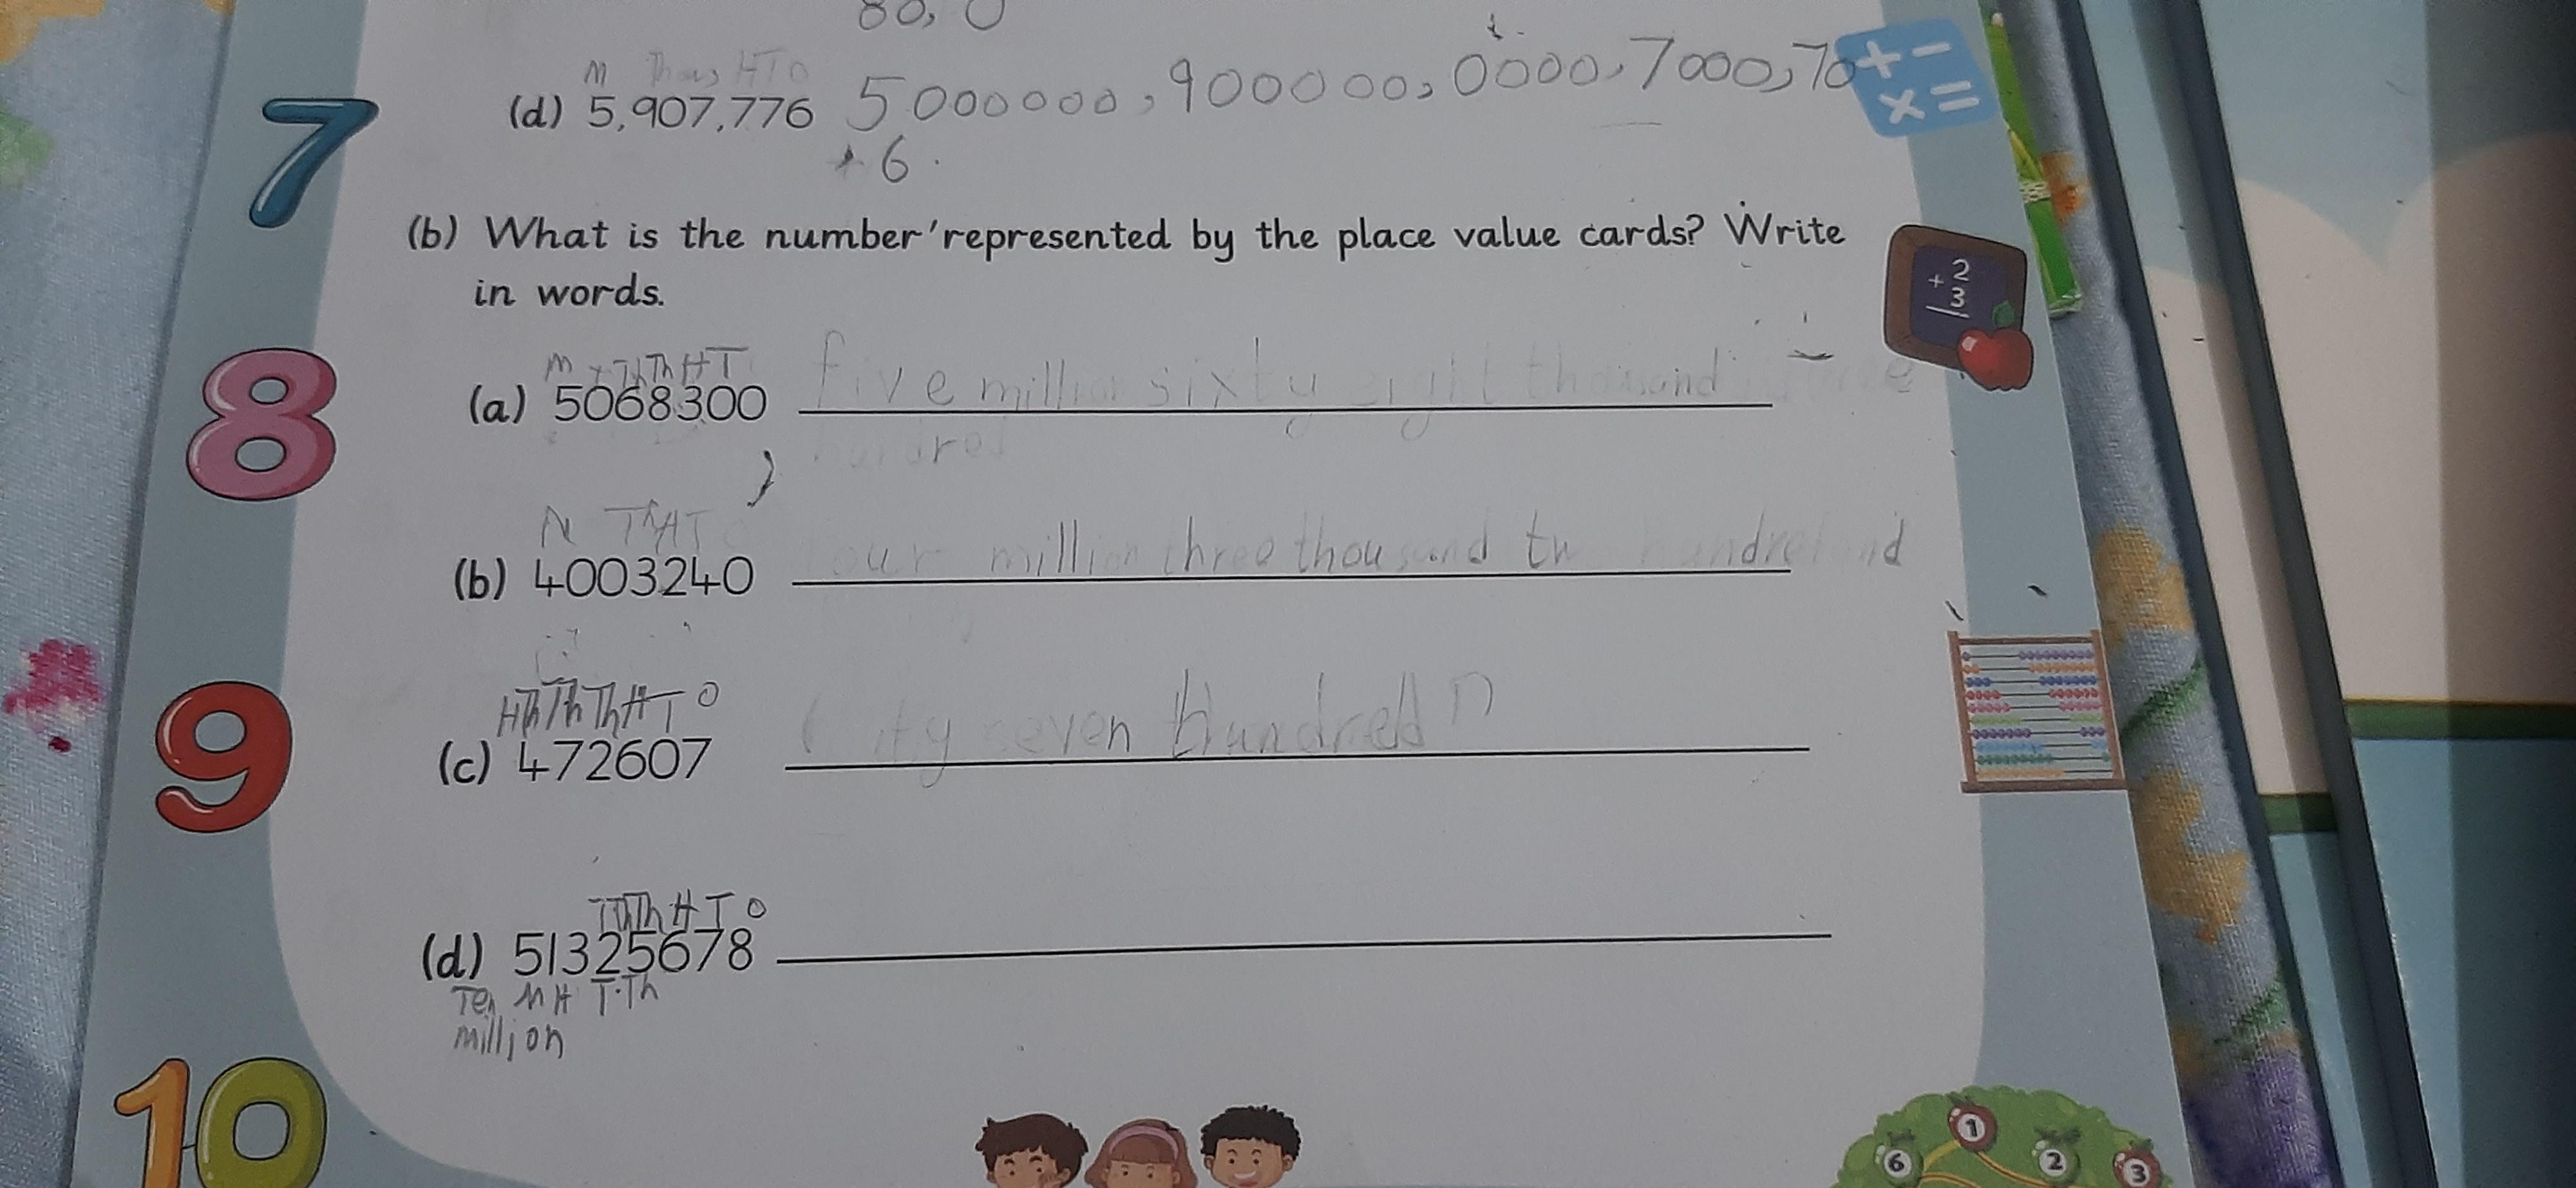 80, 0
M Thous H T O
7 (d) 5,907,776 5000000, 900000, 0000, 7000, 70
+ - × =
, 6.
(b) What is the number represented by the place value cards? Write
in words.
+ 2
3
M T Th Th H T
8 (a) 5068300 five million sixty eight thousand
Th H T
(b) 4003240 million three thousand
H Th T Th Th H T O
9 (c) 472607 seven Hundred
T Th Th H T O
(d) 51325678
Ten M H T.Th
million
10
1
6 2 3